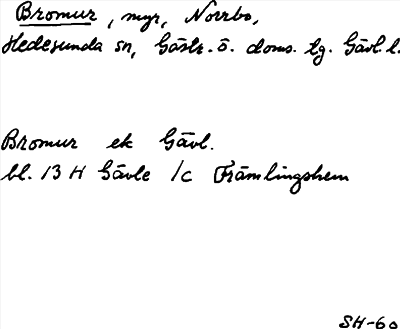 Bromur, myr, Norrbo,
Hedesunda sn, Gästr. ö. doms. tg. Gävl. l.
Bromur ek Gävl.
bl. 13 H Gävle /c Främlingshem
SH-60